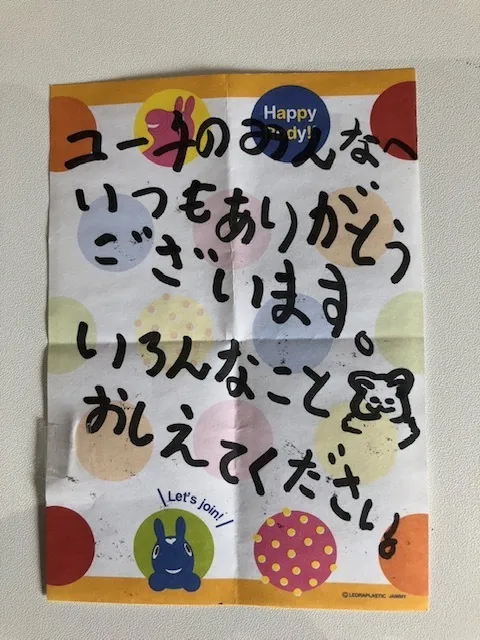 Happy
Rody!!
コーチのみんなへ
いつもありがとう
ございます。
いろんなこと
おしえてください。
Let's join!
© LEDRAPLASTIC JAMMY